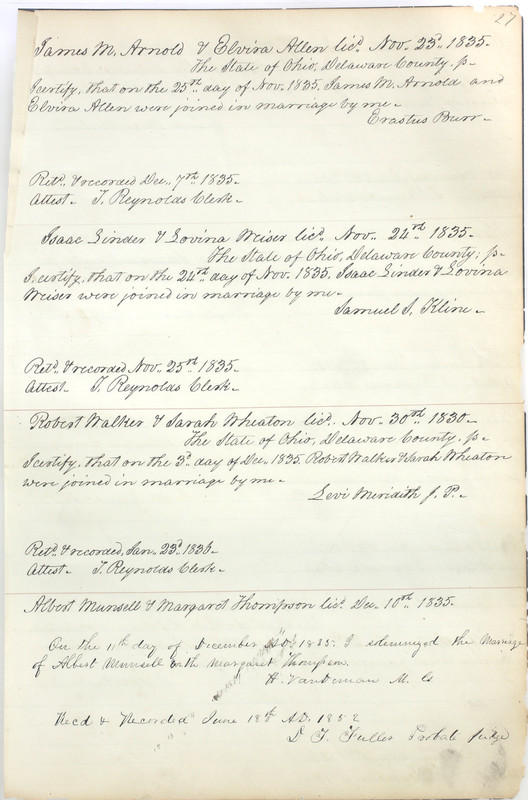 27
James M. Arnold & Elvira Allen licd. Nov. 23d 1835.
The State of Ohio, Delaware County, ss
I certify, that on the 25th day of Nov. 1835. James M. Arnold and
Elvira Allen were joined in marriage by me.
Erastus Burr.
Retd. & recorded Dec. 7th 1835.
Attest. T. Reynolds Clerk.
Isaac Linder & Lovina Weiser licd. Nov. 24th 1835.
The State of Ohio, Delaware County; ss
I certify, that on the 24th day of Nov. 1835. Isaac Linder & Lovina
Weiser were joined in marriage by me.
Samuel S. Kline.
Retd. & recorded Nov. 25th 1835.
Attest. T. Reynolds Clerk.
Robert Walker & Sarah Wheaton licd. Nov. 30th 1830.
The State of Ohio, Delaware County. ss
I certify, that on the 3d day of Dec. 1835. Robert Walker & Sarah Wheaton
were joined in marriage by me.
Levi Meridith J. P.
Retd. & recorded, Jan. 23d 1836.
Attest. T. Reynolds Clerk.
Albert Munsell & Margaret Thompson licd. Dec. 10th 1835.
On the 11th day of December AD 1835. I solemnized the Marriage
of Albert Munsell & Margaret Thompson.
H. Vandeman M. G
Recd & Recorded June 18th A.D. 1852
D. T. Fuller Probate Judge